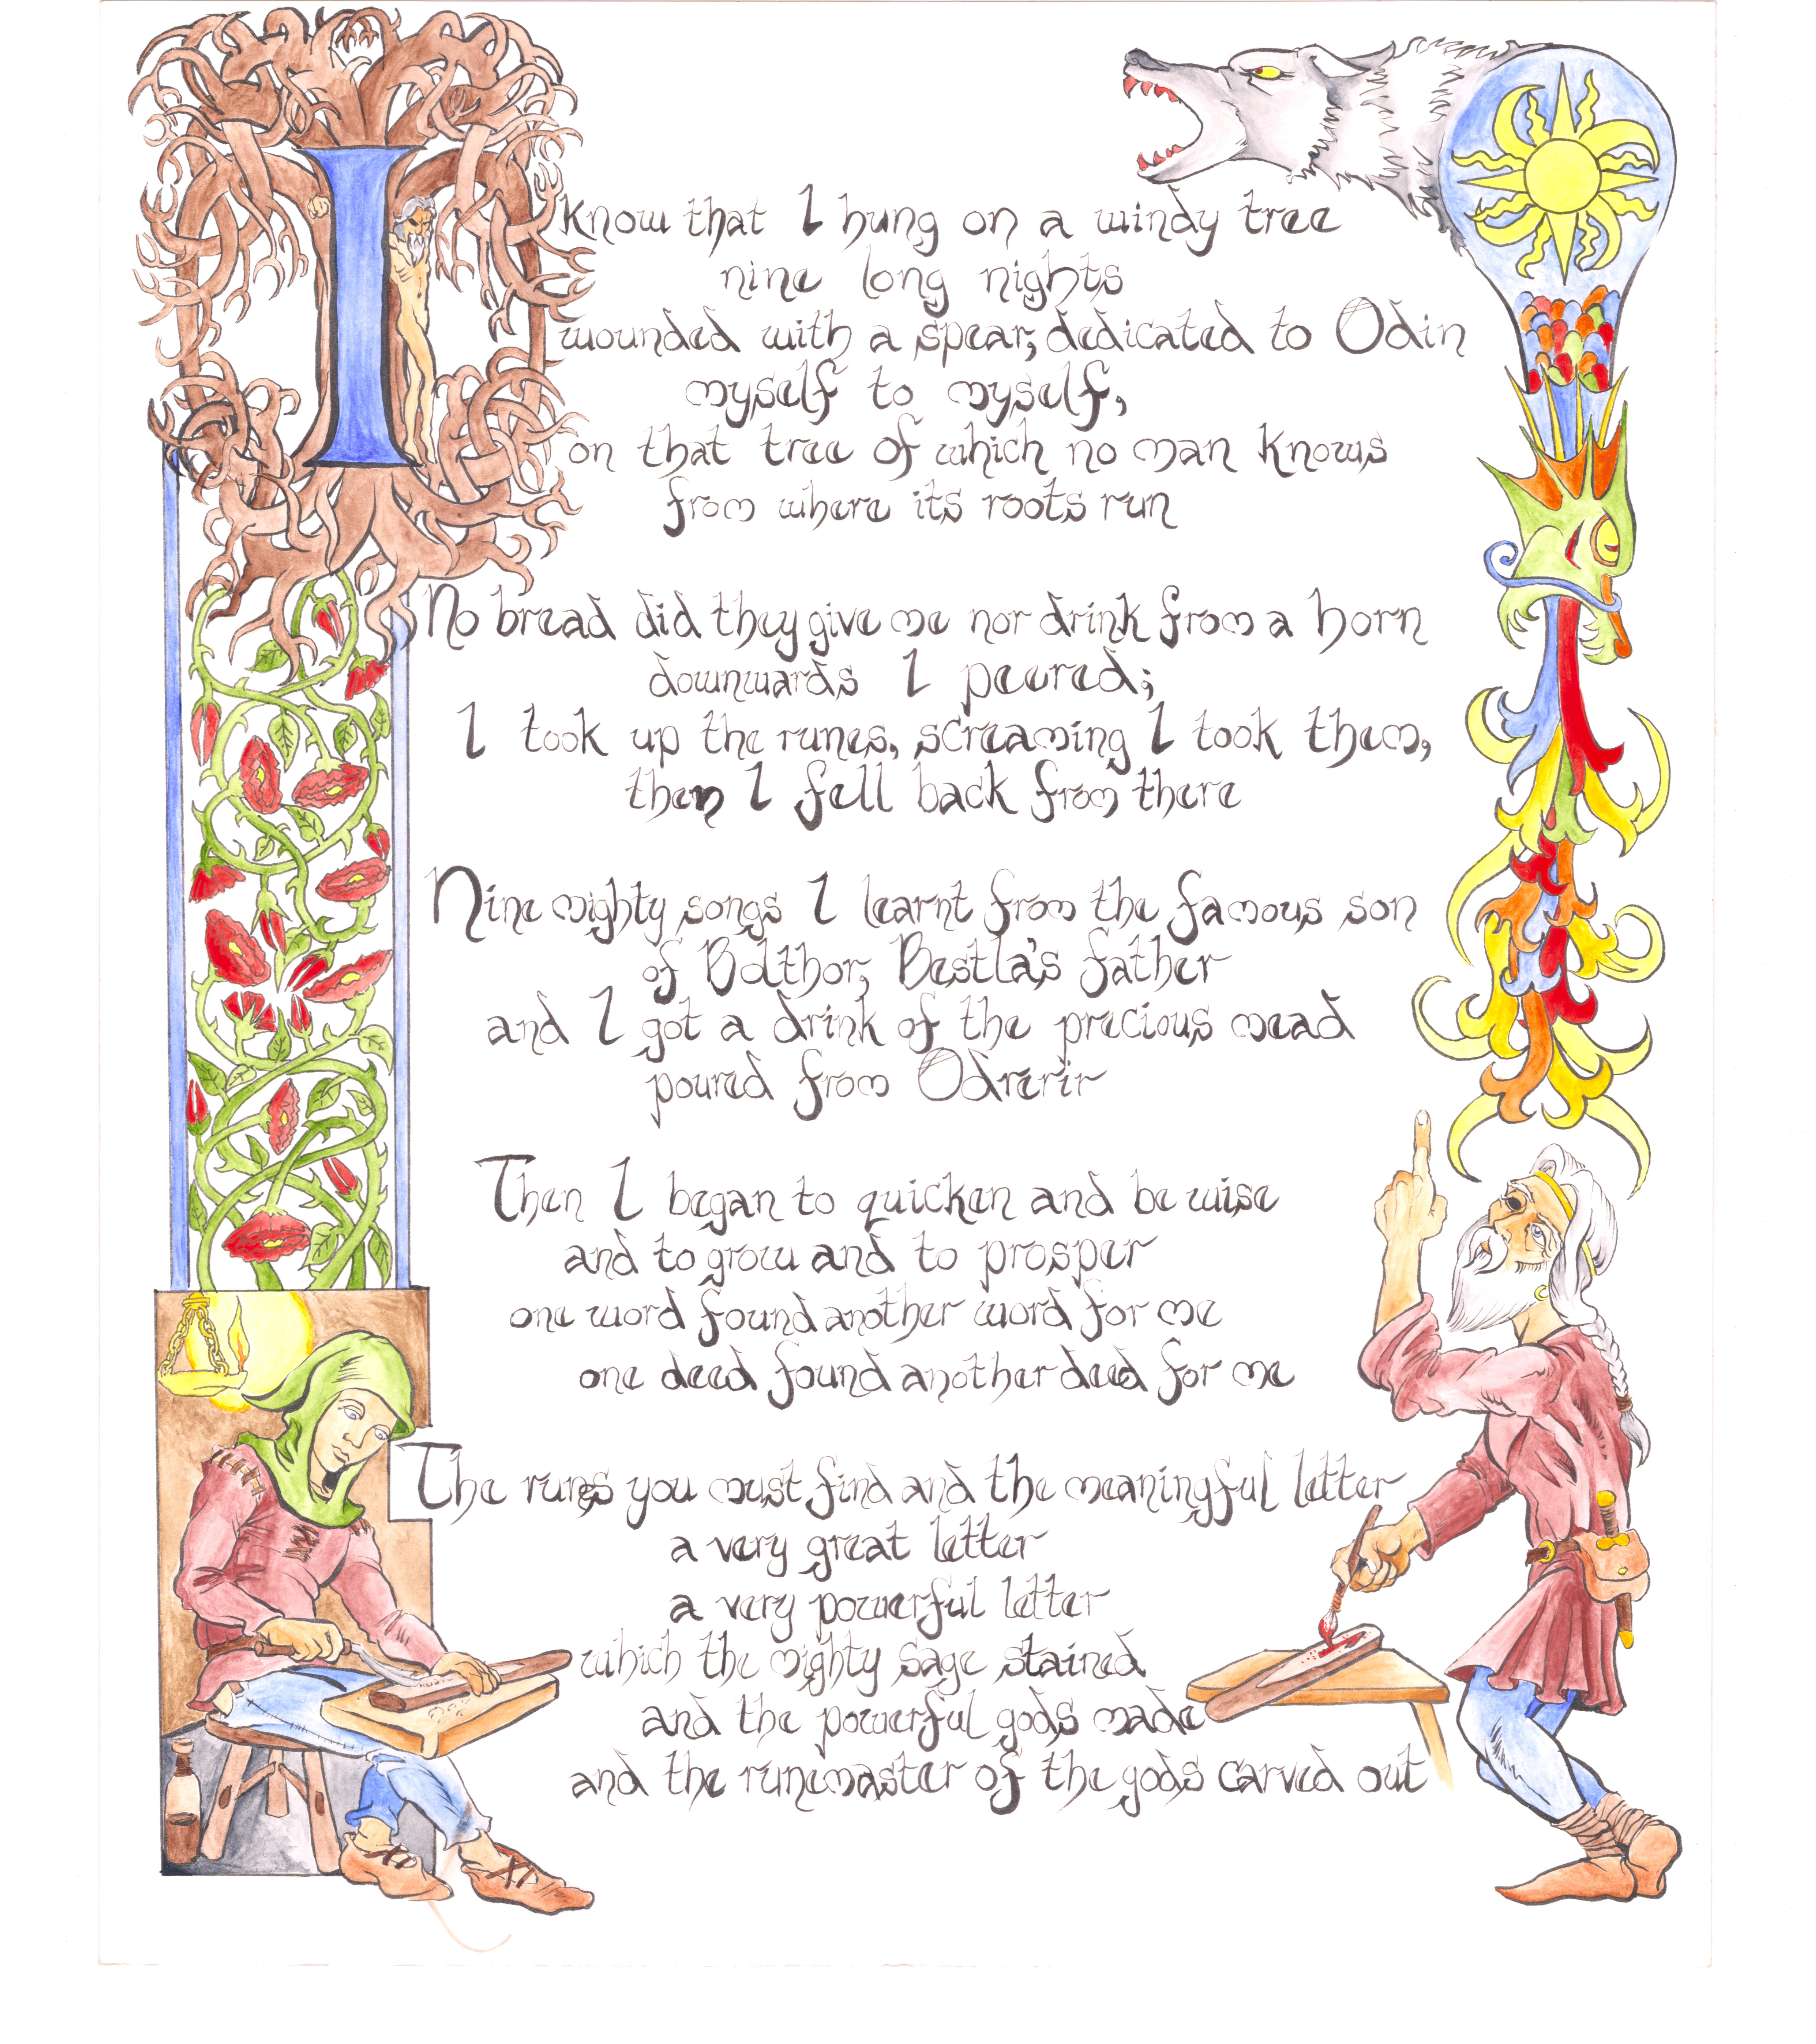 I know that I hung on a windy tree
nine long nights
wounded with a spear, dedicated to Odin
myself to myself,
on that tree of which no man knows
from where its roots run
No bread did they give me nor drink from a horn
downwards I peered;
I took up the runes, screaming I took them,
then I fell back from there
Nine mighty songs I learnt from the famous son
of Bolthor, Bestla's father
and I got a drink of the precious mead
poured from Odrerir
Then I began to quicken and be wise
and to grow and to prosper
one word found another word for me
one deed found another deed for me
The runes you must find and the meaningful letter
a very great letter
a very powerful letter
which the mighty sage stained
and the powerful gods made
and the runemaster of the gods carved out